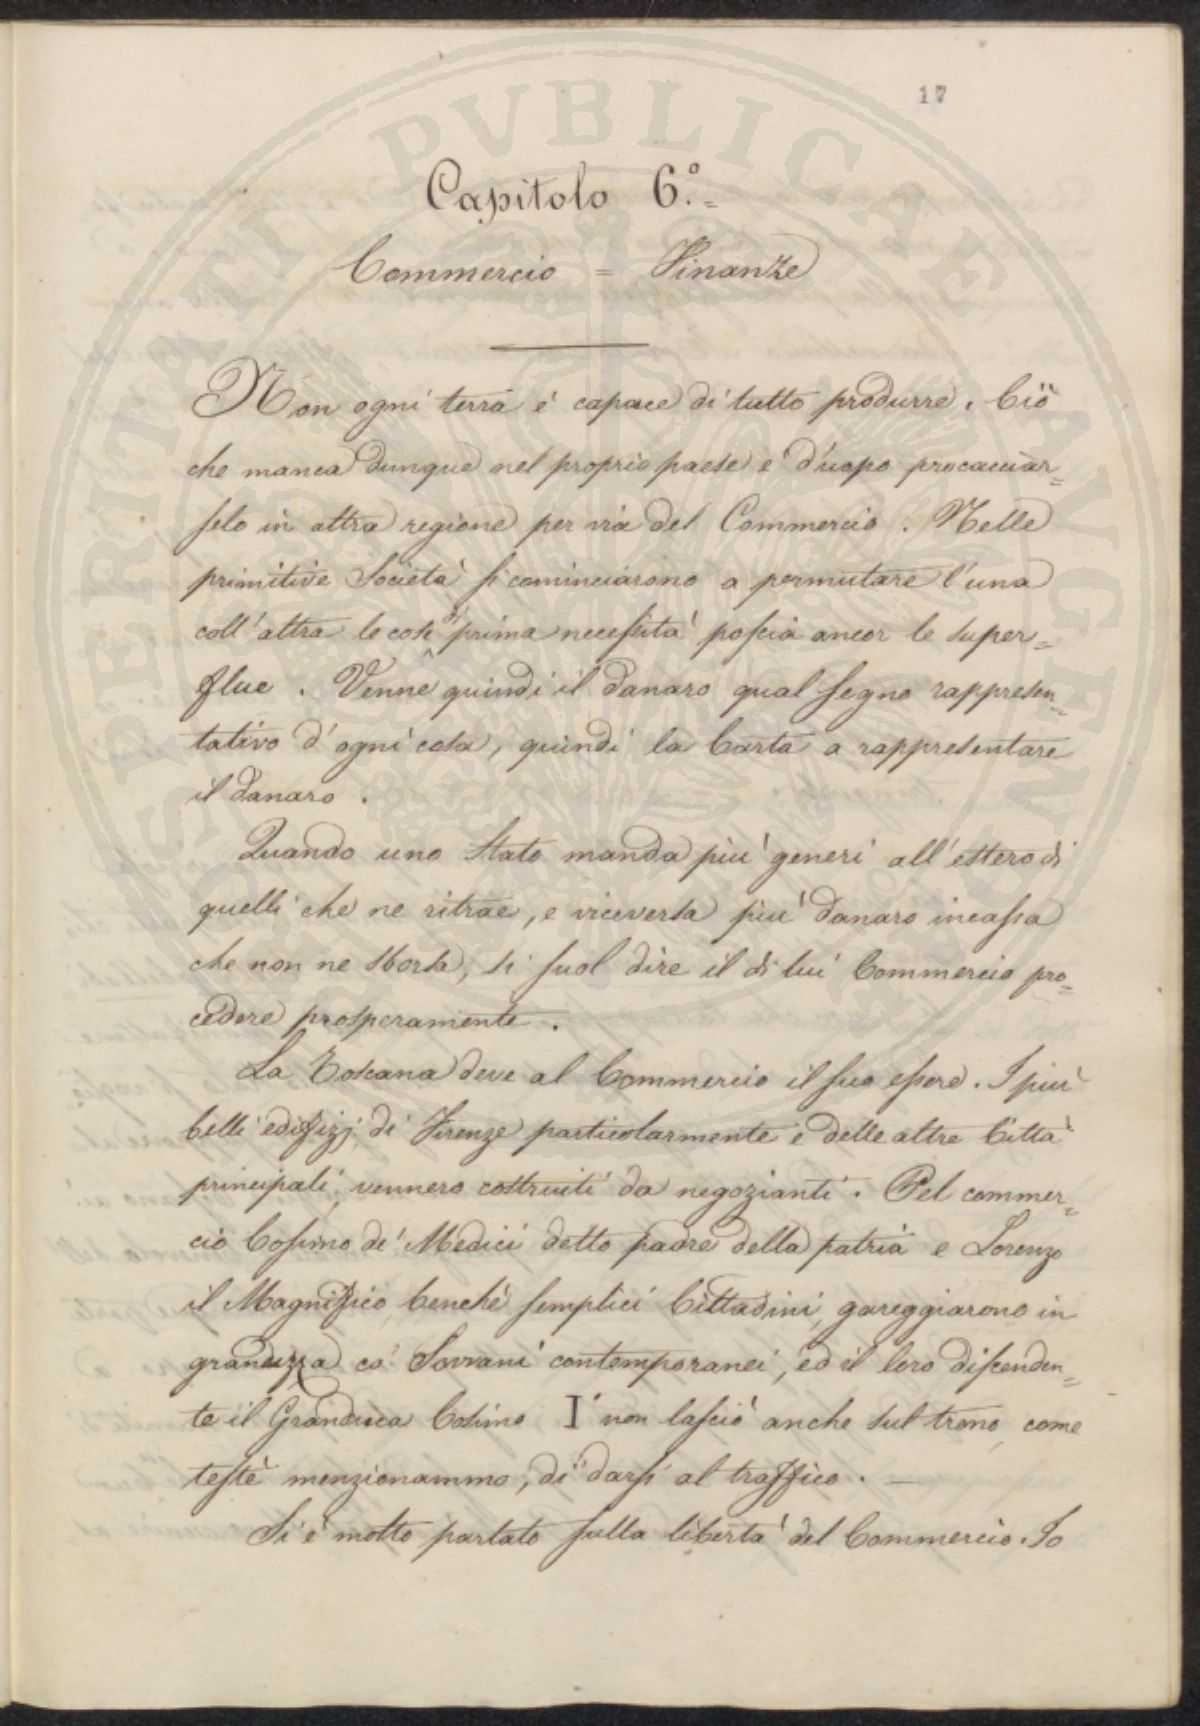 17
Capitolo 6.°=
Commercio = Finanze
Non ogni terra è capace di tutto produrre. Ciò
che manca dunque nel proprio paese è d'uopo procacciar=
selo in altra regione per via del Commercio. Nelle
primitive Società si cominciarono a permutare l'una
coll'altra le cose di prima necessità poscia ancor le super=
flue. Venne quindi il danaro qual segno rappresen=
tativo d'ogni cosa, quindi la Carta a rappresentare
il danaro.
Quando uno Stato manda più generi all'estero di
quelli che ne ritrae, e viceversa più danaro incassa
che non ne sborsa, si suol dire il di lui Commercio pro=
cedere prosperamente.
La Toscana deve al Commercio il suo essere. I più
belli edifizj di Firenze particolarmente e delle altre Città
principali, vennero costruiti da negozianti. Pel commer=
cio Cosimo de' Medici detto padre della patria e Lorenzo
il Magnifico, benchè semplici Cittadini, gareggiarono in
grandezza co' Sovrani contemporanei, ed il loro discenden=
te il Granduca Cosimo I° non lasciò anche sul trono, come
testè menzionammo, di darsi al traffico. —
Si è molto parlato sulla libertà del Commercio. Io
PROSPERITATI PVBLICAE AVGENDAE